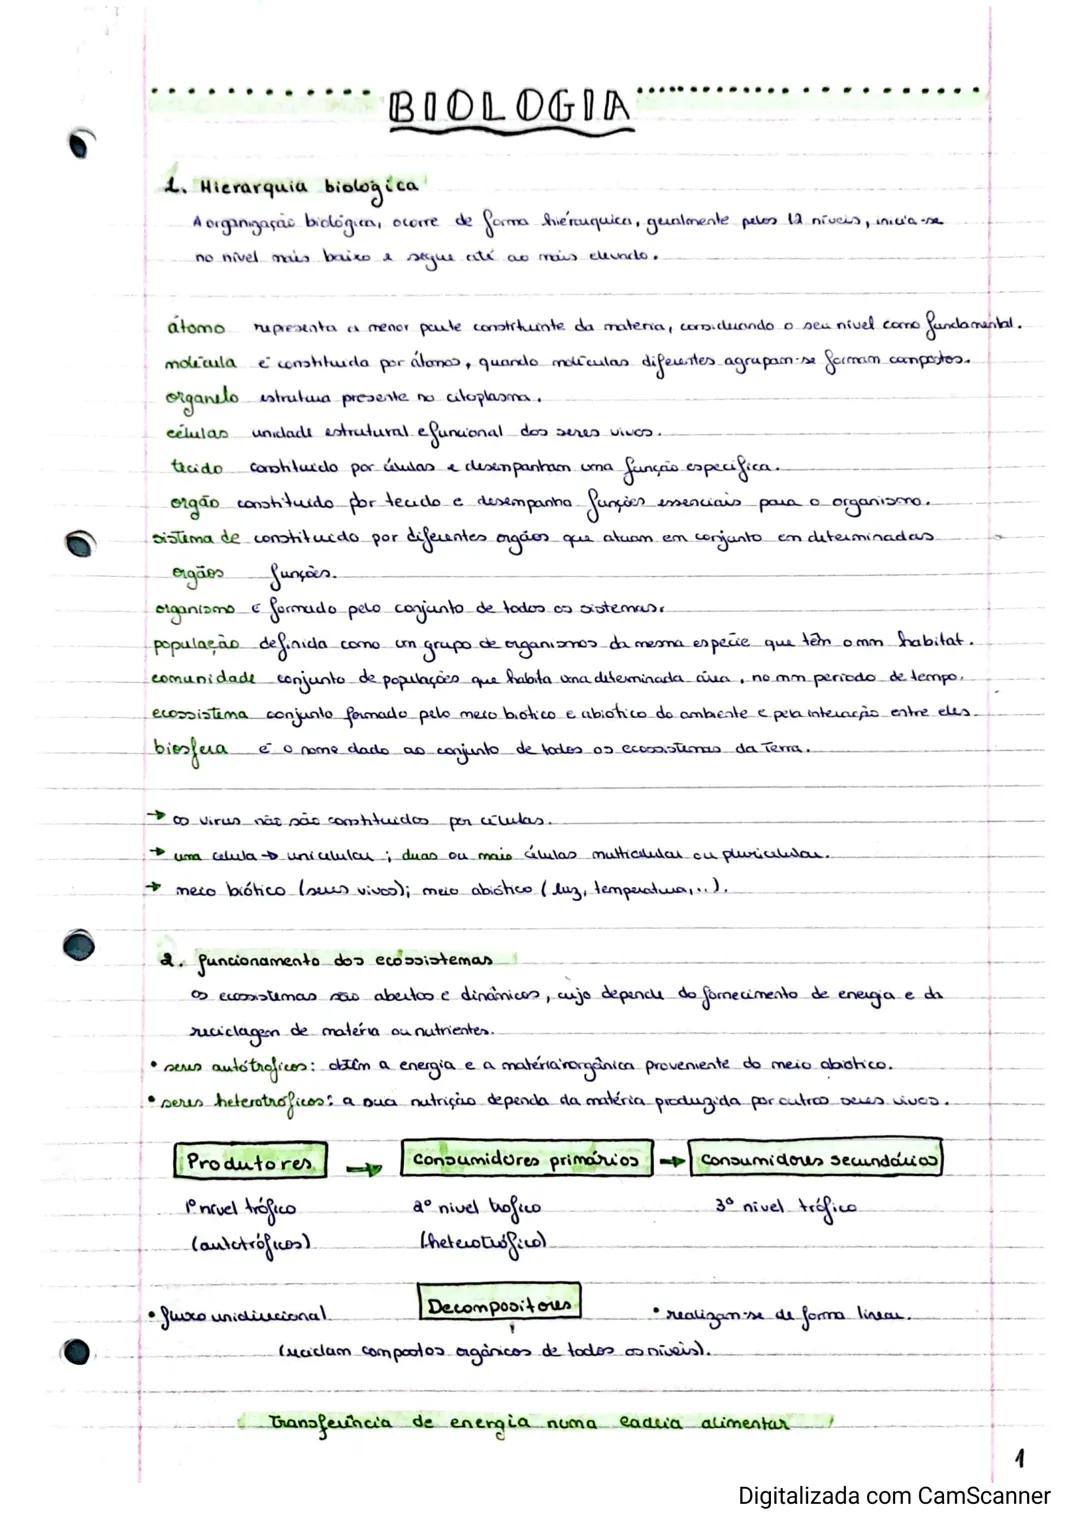 BIOLOGIA
1. Hierarquia biológica
A organização biológica, ocorre de forma hiérarquica, geralmente pelos 12 níveis, inicia-se
no nível mais baixo e segue até ao mais elevado.
átomo representa a menor parte constituinte da materia, considerando o seu nível como fundamental.
molécula é constituida por átomos, quando moléculas diferentes agrupam-se formam compostos.
organelo estrutura presente no citoplasma.
células unidade estrutural e funcional dos seres vivos.
tecido constituido por células e desempanham uma função especifica.
orgão constituído por tecido e desempanha funções essenciais para o organismo.
sistema de constituido por diferentes orgãos que atuam em conjunto em determinadas
orgãos funções.
organismo é formado pelo conjunto de todos os sistemas.
população definida como um grupo de organismos da mesma espécie que têm o mm habitat.
comunidade conjunto de populações que habita uma determinada área, no mm periodo de tempo.
ecossistema conjunto formado pelo meio biótico e abiotico do ambiente e pela interação entre eles.
biosfera é o nome dado ao conjunto de todos os ecossistemas da Terra.
→ os virus não são constituidos por células.
→ uma celula → unicelular ; duas ou mais células multicelular ou pluricelular.
→ meio biótico (seres vivos); meio abiótico (luz, temperatura,..).
2. funcionamento dos ecossistemas
os ecossistemas são abertos e dinâmicos, cujo depende do fornecimento de energia e da
reciclagem de matéria ou nutrientes.
• seres autótroficos: obtêm a energia e a matéria inorgânica proveniente do meio abiotico.
• seres heterotróficos: a sua nutrição dependa da matéria produzida por outros seres vivos.
Produtores → consumidores primários → consumidores secundários
1º nivel trófico 2º nivel trofico 3º nivel trófico
(autotróficos) (heterotrófico)
• fluxo unidirecional Decompositores • realizam-se de forma linear.
(reciclam compostos orgânicos de todos os níveis).
Transferência de energia numa cadeia alimentar
1
Digitalizada com CamScanner